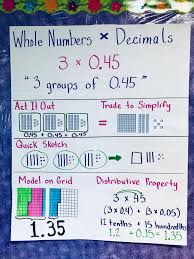 Whole Numbers × Decimals
3 × 0.45
"3 groups of 0.45"
Act It Out
=
Trade to Simplify
0.45 + 0.45 + 0.45
Quick Sketch
Model on Grid
1.35
Distributive Property
3 × .45
(3 × 0.4) + (3 × 0.05)
12 tenths + 15 hundredths
1.2 + 0.15 = 1.35